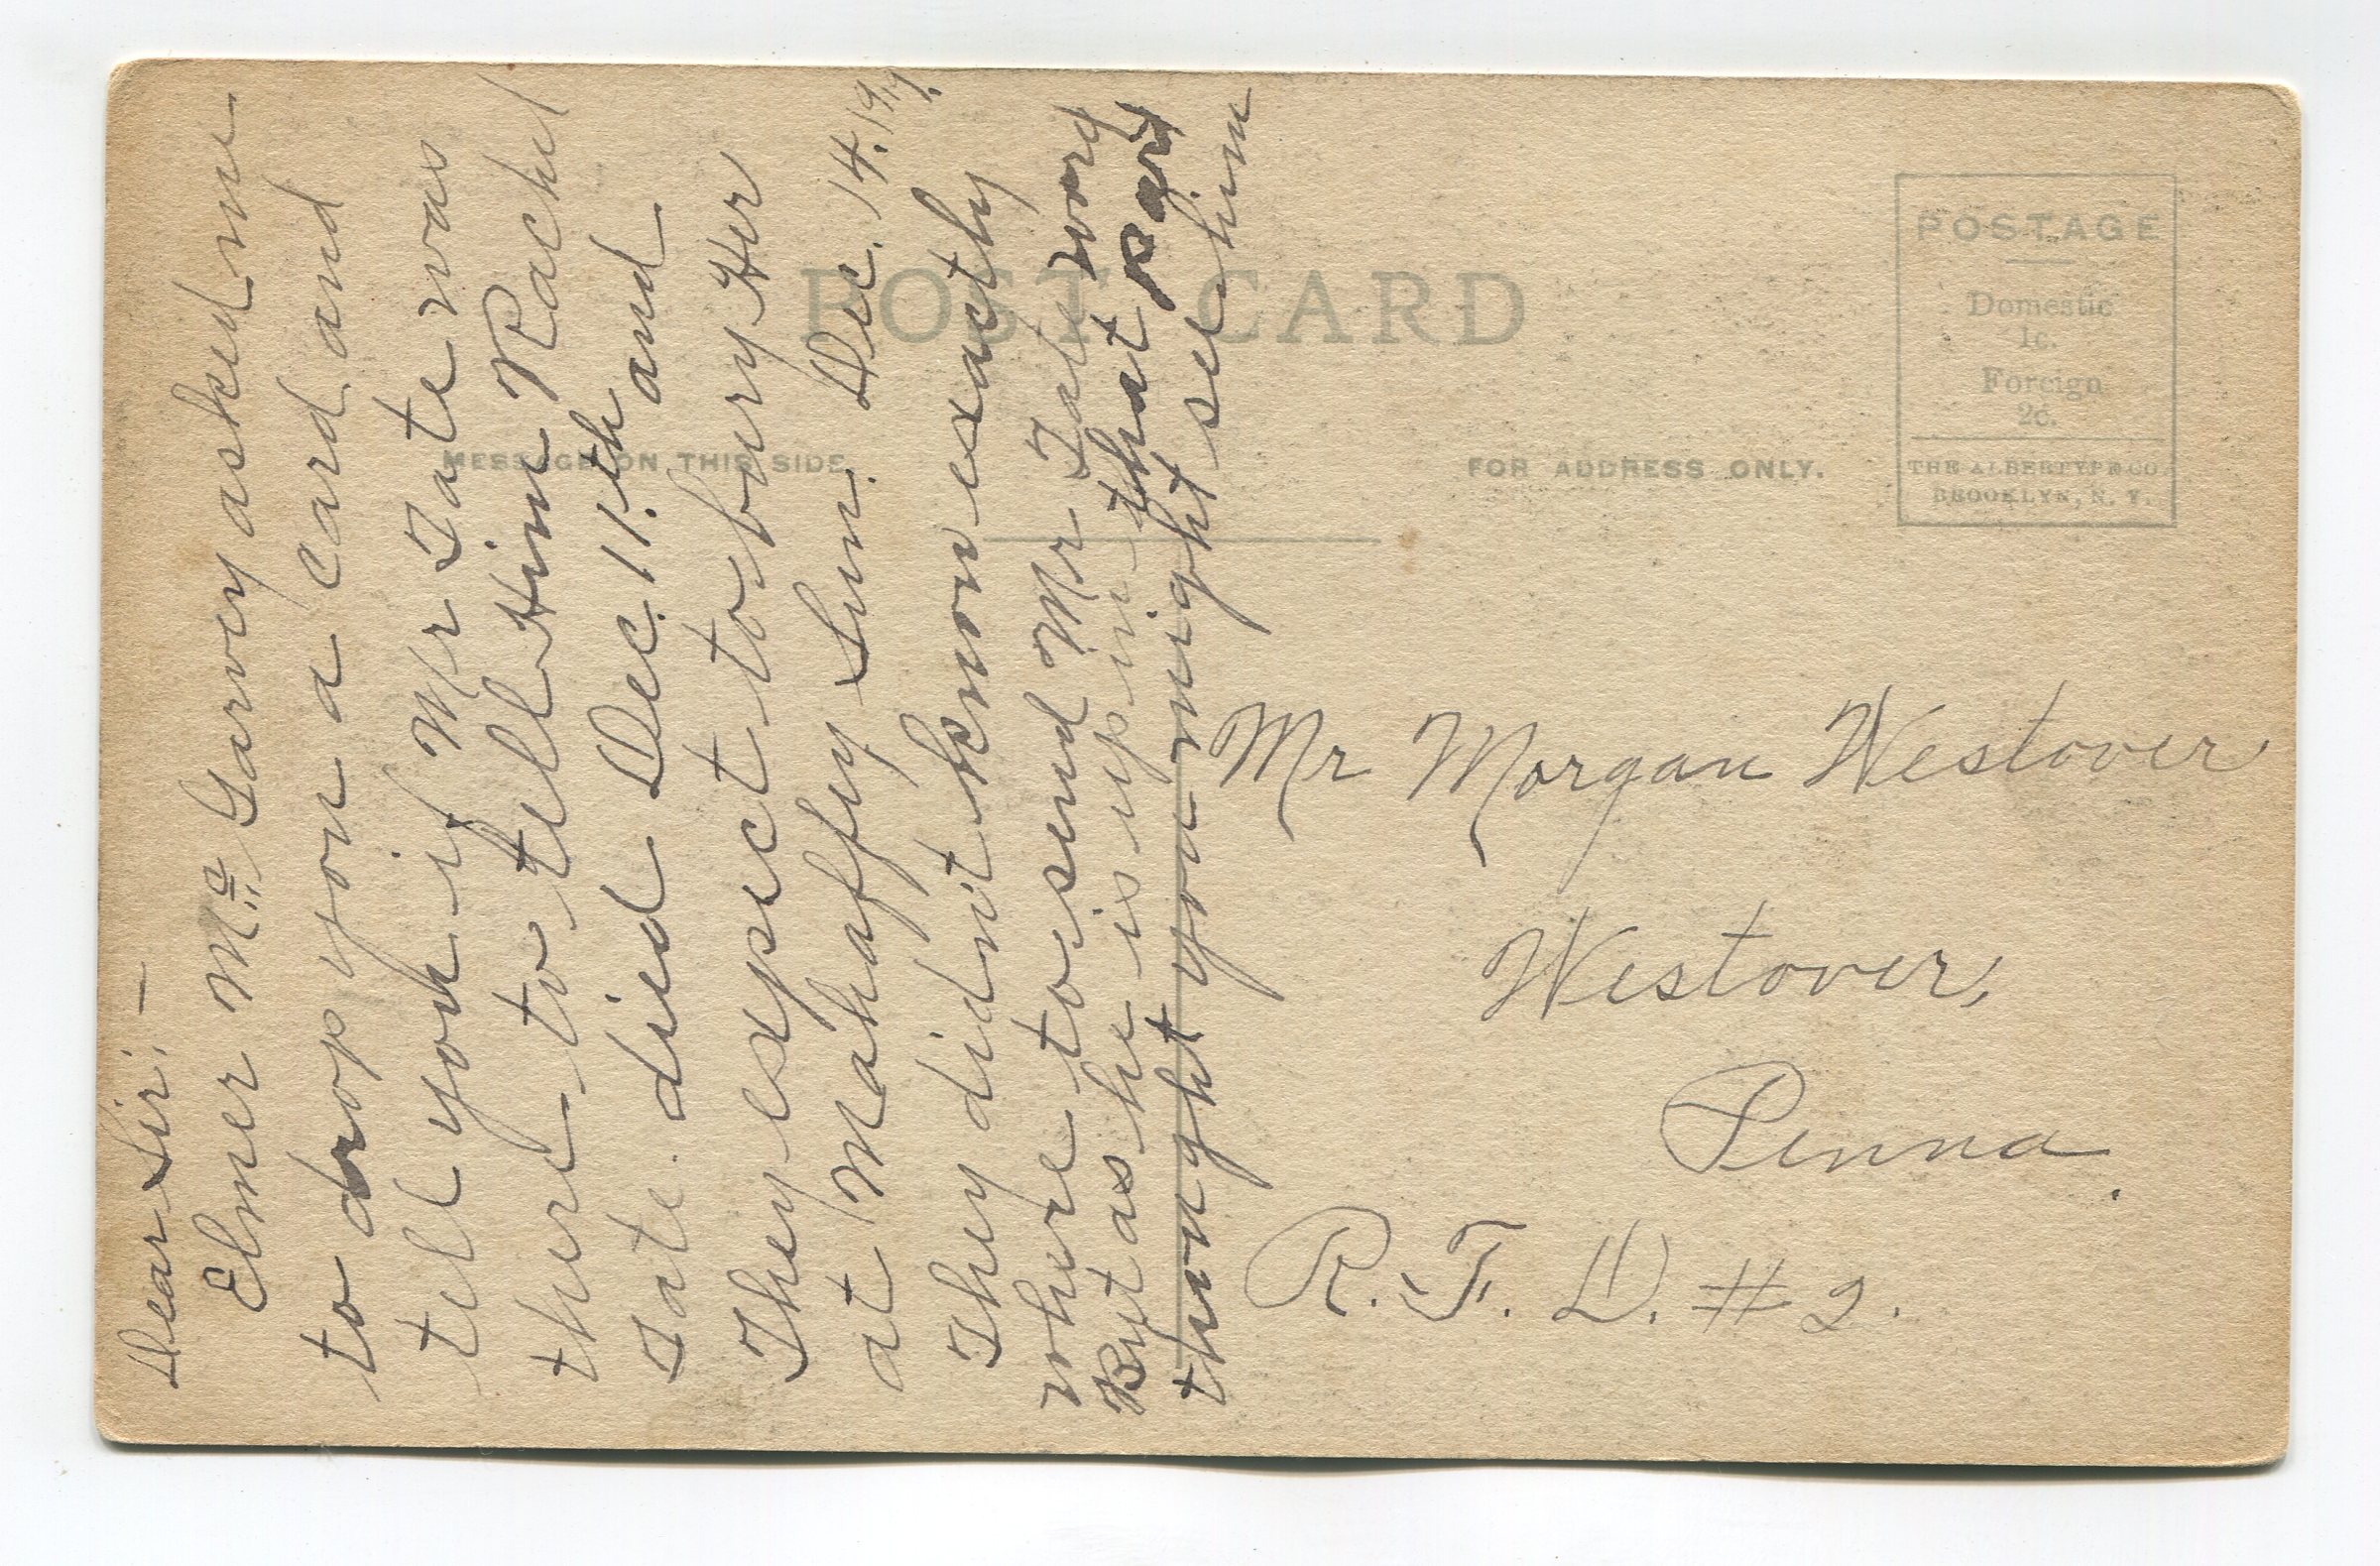 Dear Sir:—
Elmer Mc Garvey asked me
to drop you a card and
tell you if Mr Tate was
there to tell Him Rachel
Tate died Dec. 11.th and
They expect to bury Her
at Mahaffey Sun. Dec. 14. 19
They didn't know exactly
where to send Mr Tate word
But as he is up in that part
thought you might see him
POST CARD
MESSAGE ON THIS SIDE.
FOR ADDRESS ONLY.
POSTAGE
Domestic
1c.
Foreign
2c.
THE ALBERTYPE CO.
BROOKLYN, N. Y.
Mr Morgan Westover
Westover,
Penna.
R. F. D. #2.